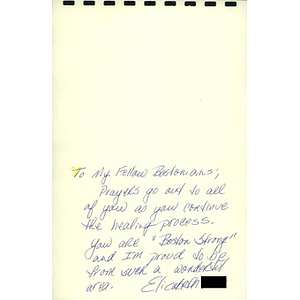 To My Fellow Bostonians,
Prayers go out to all
of you as you continue
the healing process.
You are "Boston Strong"
and I'm proud to be
from such a wonderful
area. Elizabeth